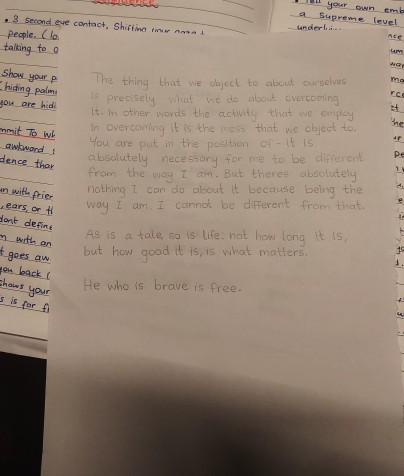 • 3 second eye contact, Shifting your
people. (lo
talking to o
Show your p
(hiding palms
you are hidi
mmit To wh
awkward s
dence than
un with frien
, ears, or th
dont define
m with an
t goes aw
you back (
shows your
s is for f
your own emb
a supreme level
The thing that we object to about ourselves
is precisely what we do about overcoming
it. In other words the activity that we employ
in overcoming it is the mess that we object to.
You are put in the position of - it is
absolutely necessary for me to be different
from the way I am. But theres absolutely
nothing I can do about it because being the
way I am. I cannot be different from that.
As is a tale, so is life: not how long it is,
but how good it is, is what matters.
He who is brave is free.